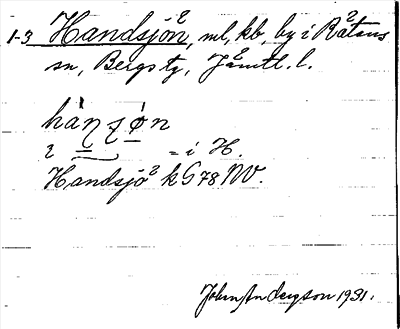 1-3 Handsjön, ml, kb, by i Rätans
sn, Bergs tg, Jämtl. l.
hànʒøn
2 = i H.
Handsjö k G 78 NV.
John Andersson 1931.